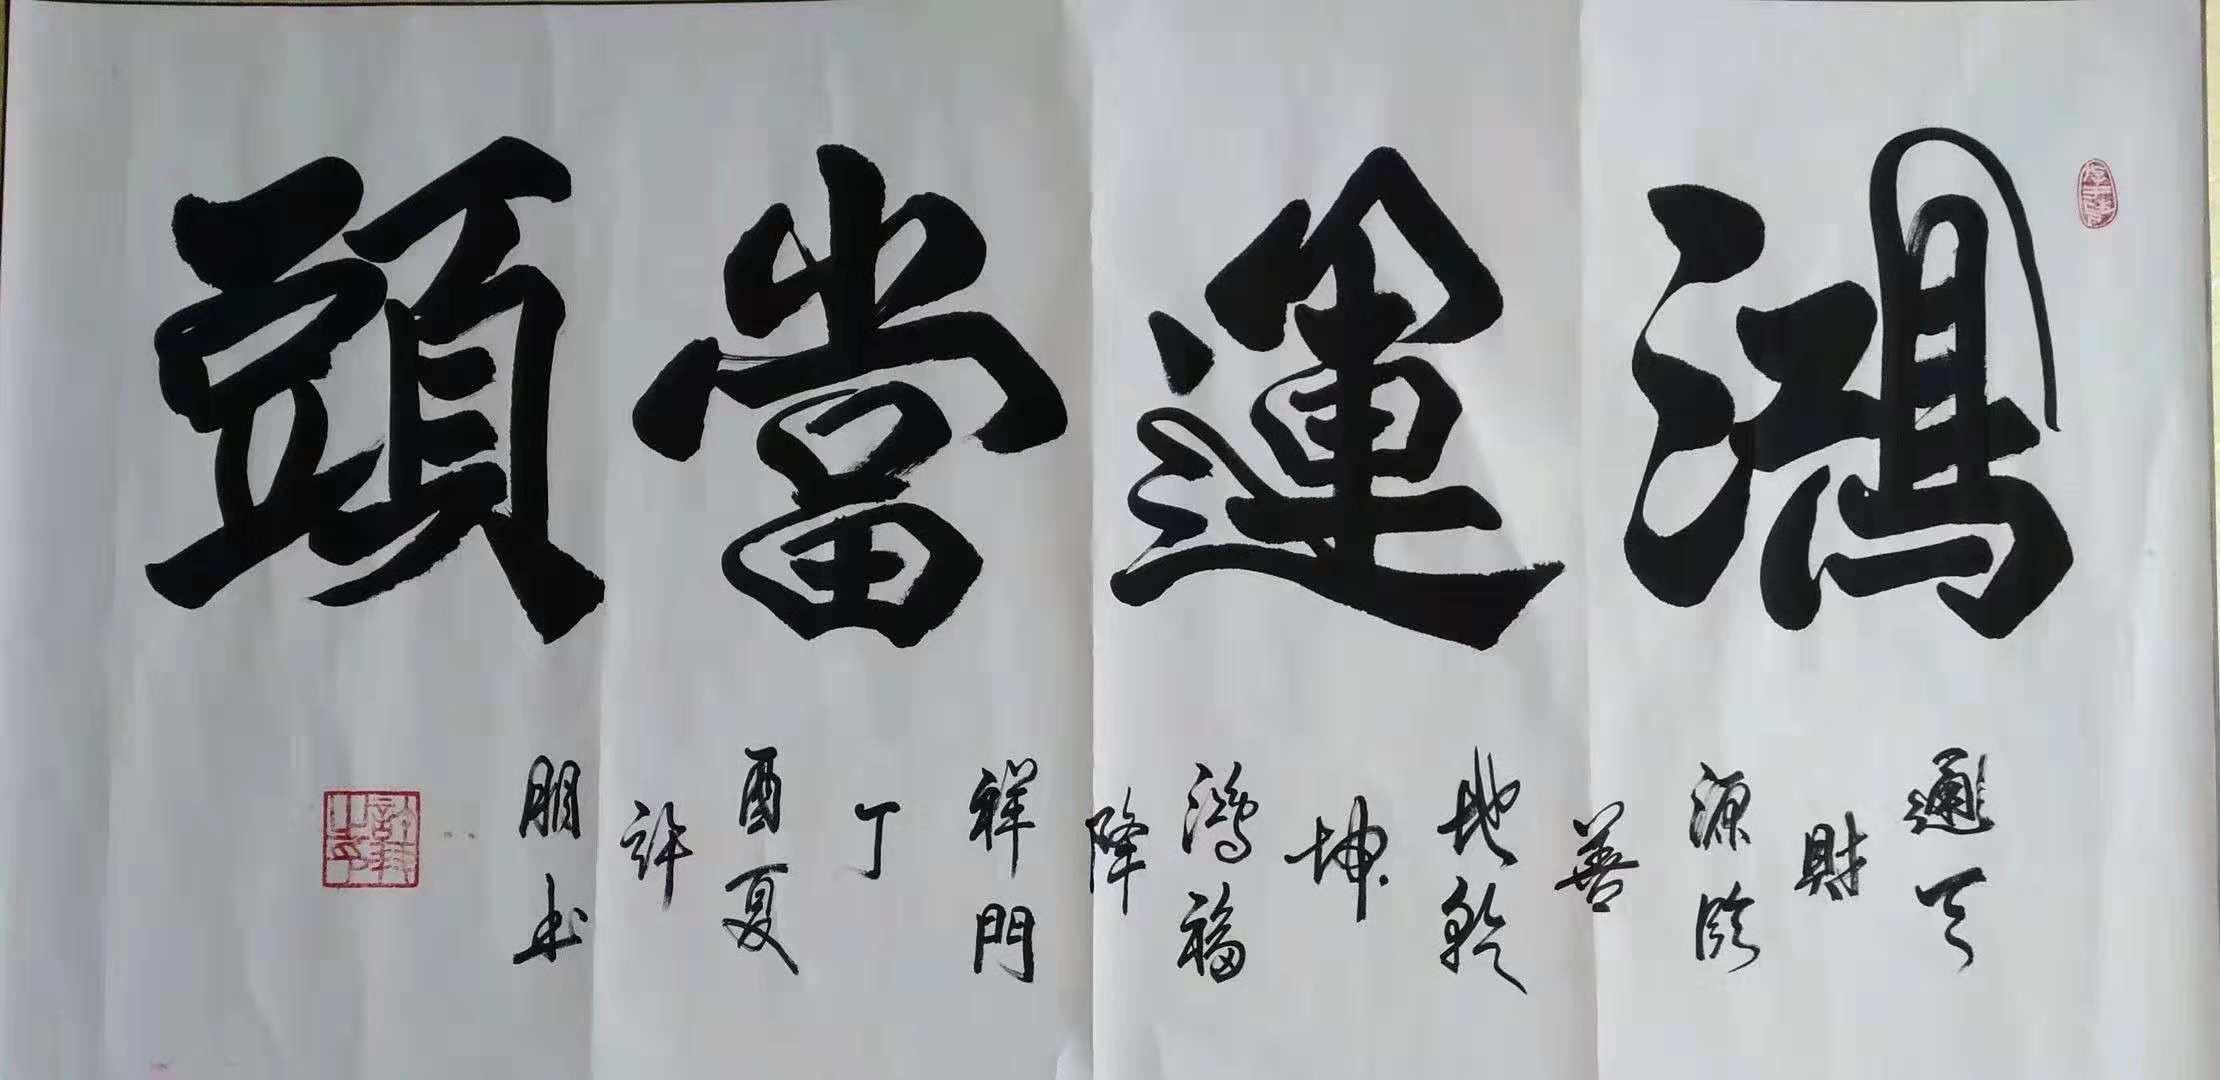 鴻運當頭
通天
財
源臨
善
地乾
坤
鴻福
降
祥門
丁
酉夏
許
朋書